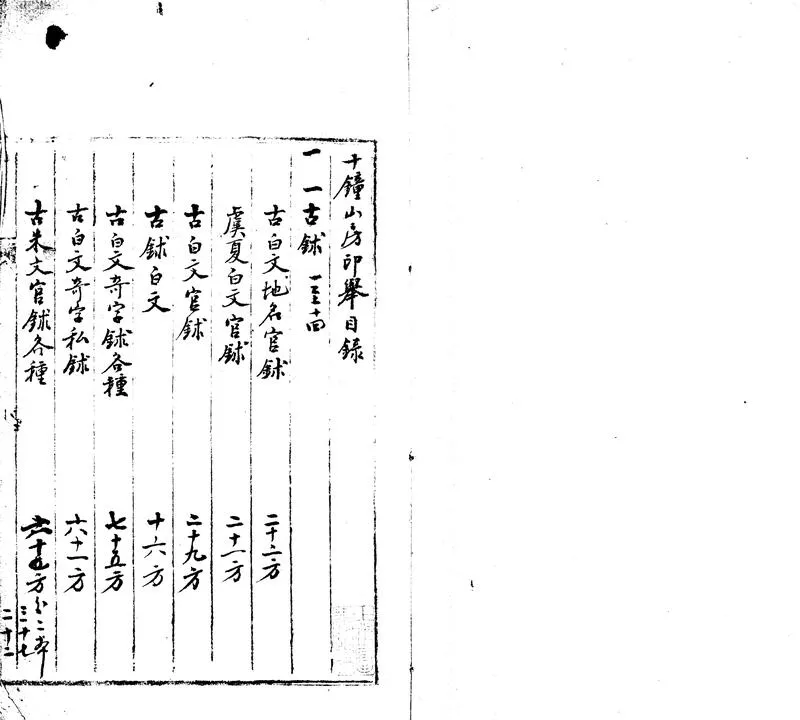 十鐘山房印舉目録
一 一古鉥 一至十四
古白文地名官鉥 二十二方
虞夏白文官鉥 二十一方
古白文官鉥 二十九方
古鉥白文 十六方
古白文奇字鉥各種 七十五方
古白文奇字私鉥 六十一方
古朱文官鉥各種 六十五方分二本
三十七
二十二